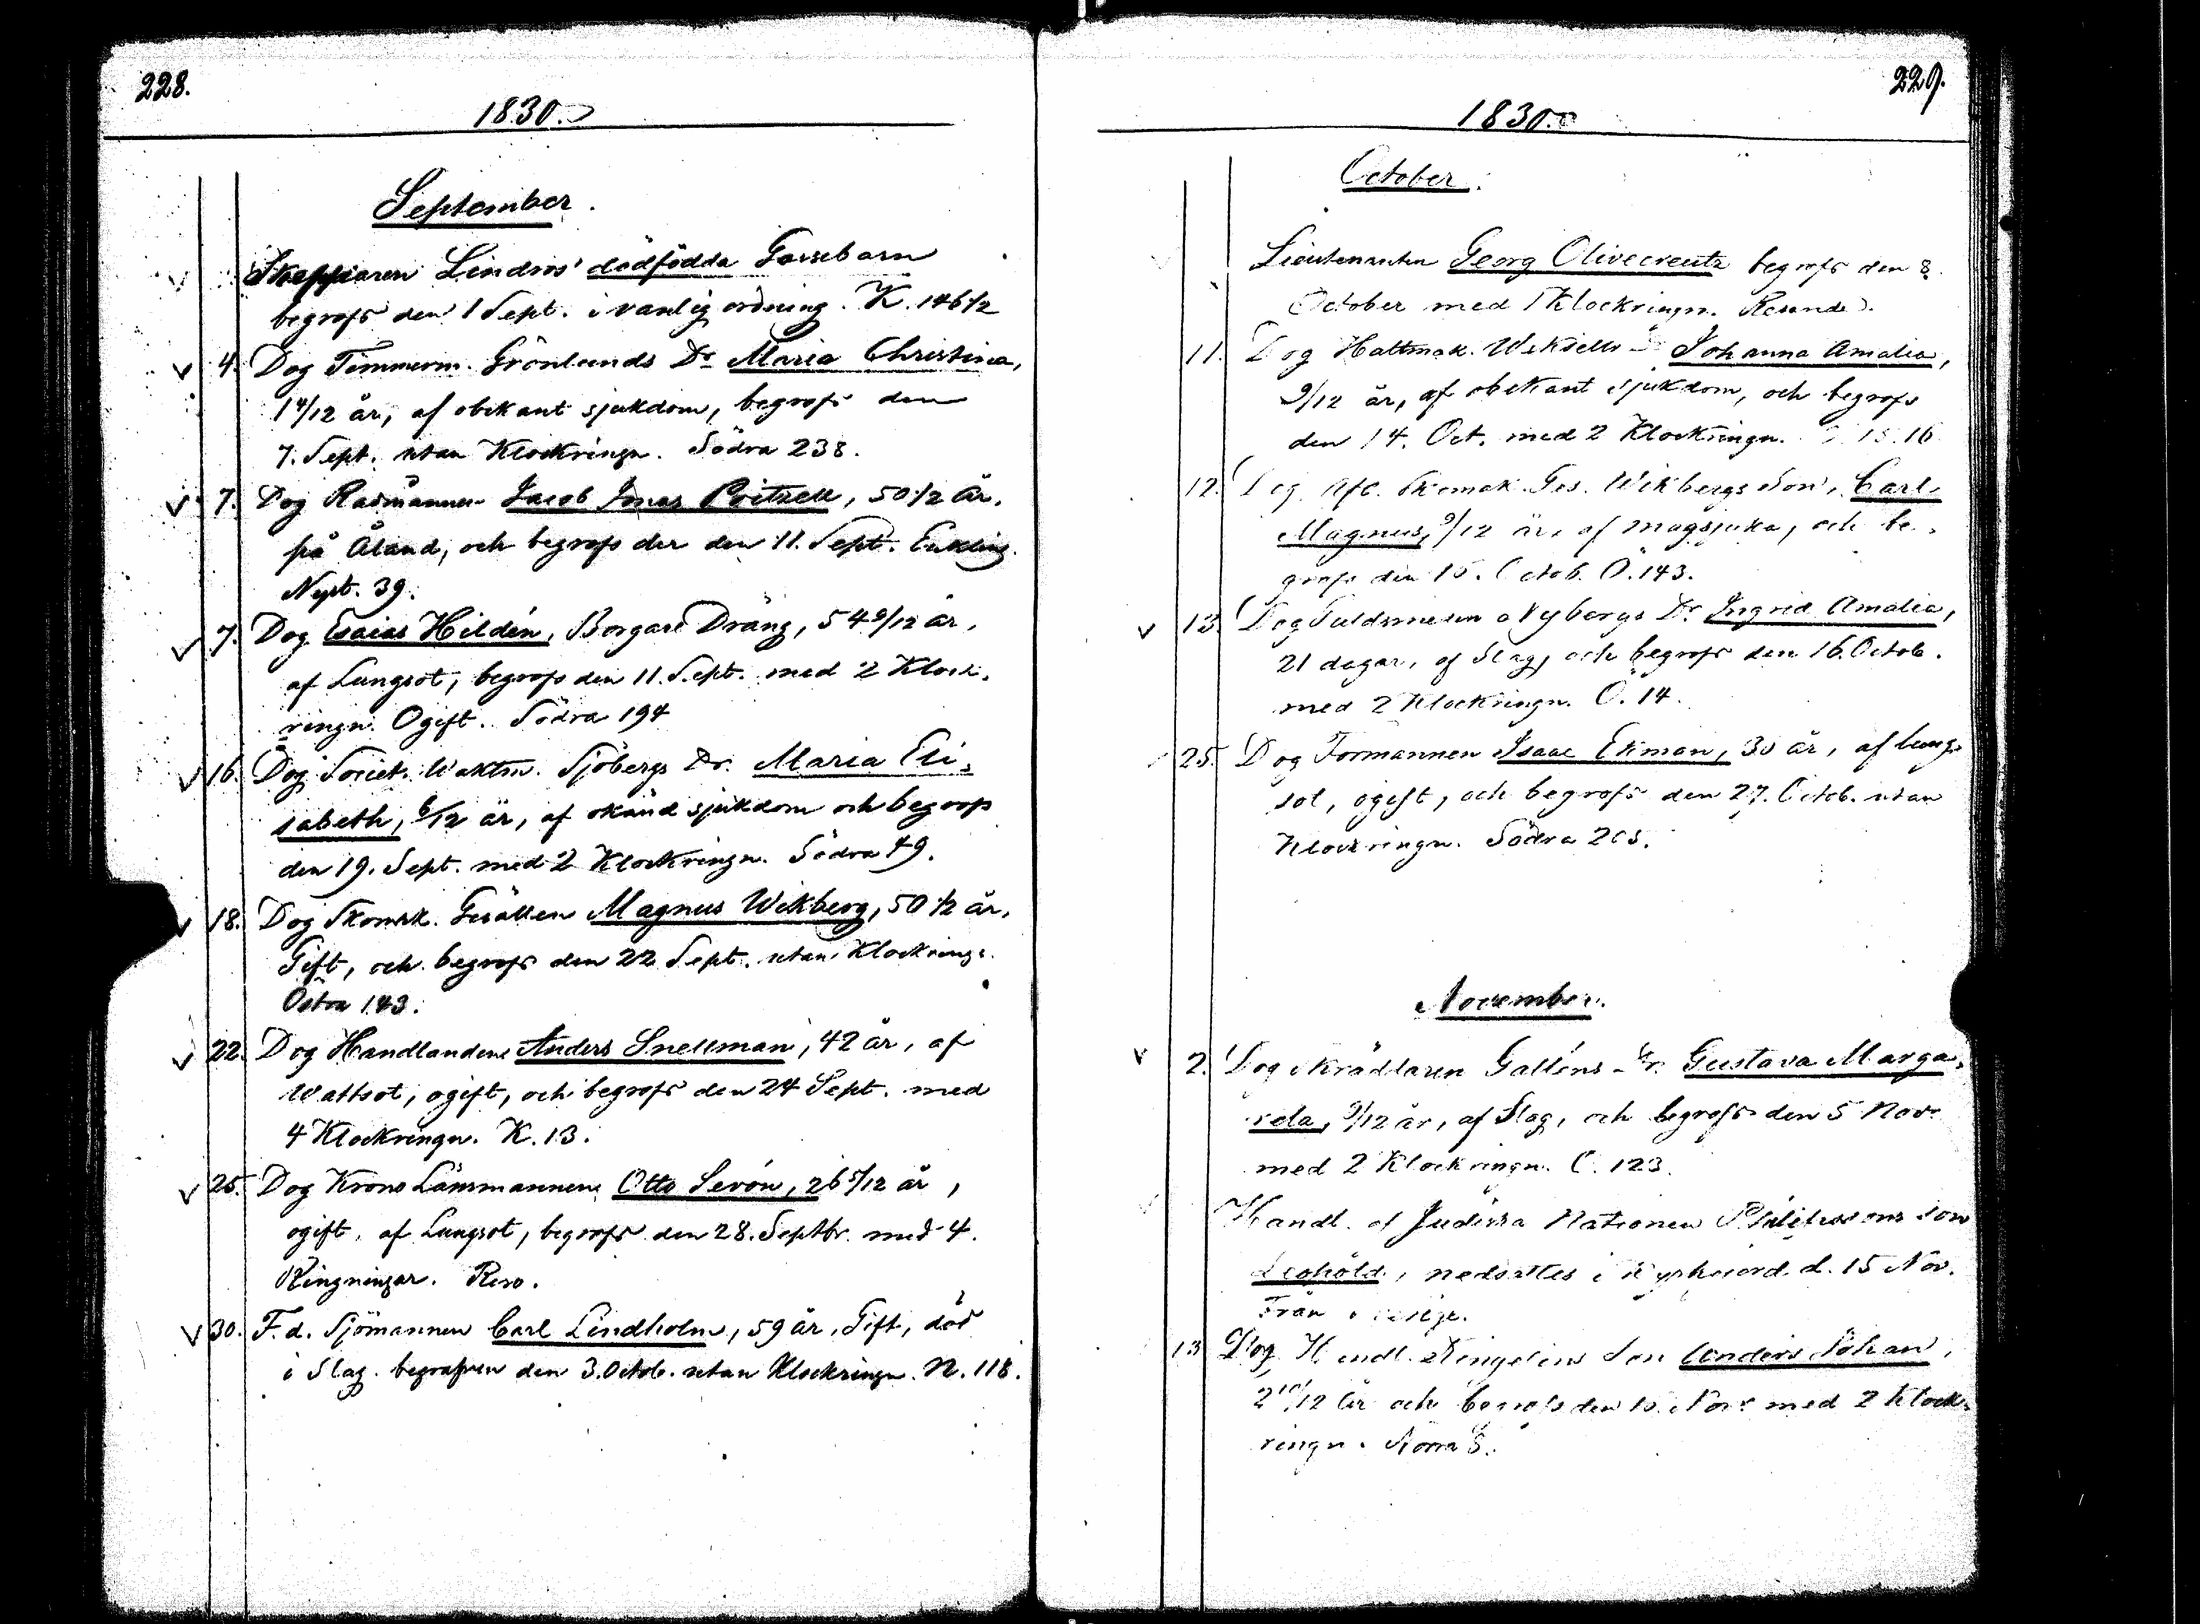 228.
1830.
September.
Skepparen Lindros' dödfödda Gossebarn
begrofs den 1 Sept. i vanlig ordning. K. 146 1/2
4. Dog Timmerm. Grönlunds Dr Maria Christina,
1 4/12 år, af obekant sjukdom, begrofs den
7. Sept. utan Klockringn. Södra 238.
7. Dog Rådmannen Jacob Jonas 50 1/2 år,
på Åland, och begrofs der den 11. Sept. Enkling.
Nyst. 39.
7. Dog Esaias Hildén, Borgare Dräng, 54 9/12 år,
af Lungsot, begrofs den 11. Sept. med 2 Klock-
ringn. Ogift. Södra 194
16. Dog Societ. Waktm. Sjöbergs Dr. Maria Eli-
sabeth, 6/12 år, af okänd sjukdom och begrofs
den 19. Sept. med 2 Klockringn. Södra 49.
18. Dog Skomak. Gesällen Magnus Wikberg, 50 1/2 år,
Gift, och begrofs den 22 Sept. utan Klockringn.
Östra 143.
22. Dog Handlanden Anders Snellman, 42 år, af
Wattsot, ogift, och begrofs den 24 Sept. med
4 Klockringn. K. 13.
25. Dog Krono Länsmannen Otto Levón, 26 5/12 år,
ogift, af Lungsot, begrofs den 28. Septbr. med 4.
Ringningar. Reso.
30. F. d. Sjömannen Carl Lindholm, 59 år, Gift, död
i Slag. begrafven den 3. Octob. utan Klockringn. N. 118.
229.
1830.
October.
Lieutenanten Georg Olivecreutz begrofs den 8.
October med 1 Klockringn. Resande.
11. Dog Hattmak. Johanna Amalia,
9/12 år, af obekant sjukdom, och begrofs
den 14. Oct. med 2 Klockringn. 15.16
12. Dog Afl. Skomak. Ges. Wikbergs Son, Carl
Magnus, 9/12 år, af magsjuka, och be-
grofs den 15. Octob. Ö. 143.
13. Dog Guldsmeden Nybergs Dr Ingrid Amalia,
21 dagar, af Slag, och begrofs den 16. Octob.
med 2 Klockringn. Ö. 14.
25. Dog Formannen Isaac Ekman, 30 år, af lung-
sot, ogift, och begrofs den 27. Octob. utan
Klockringn. Södra
November.
2. Dog Skräddaren Galléns Dr. Gustava Marga-
reta, 9/12 år, af Slag, och begrofs den 5 Nov.
med 2 Klockringn. Ö. 123.
Handl. af Judiska Nationen Philipssons son
Leopold, nedsattes i d. 15 Nov.
Från
13 Dog Handl. Ringelins Son Anders Johan,
2 10/12 år och begrofs den Nov. med 2 Klock-
ringn. Norra